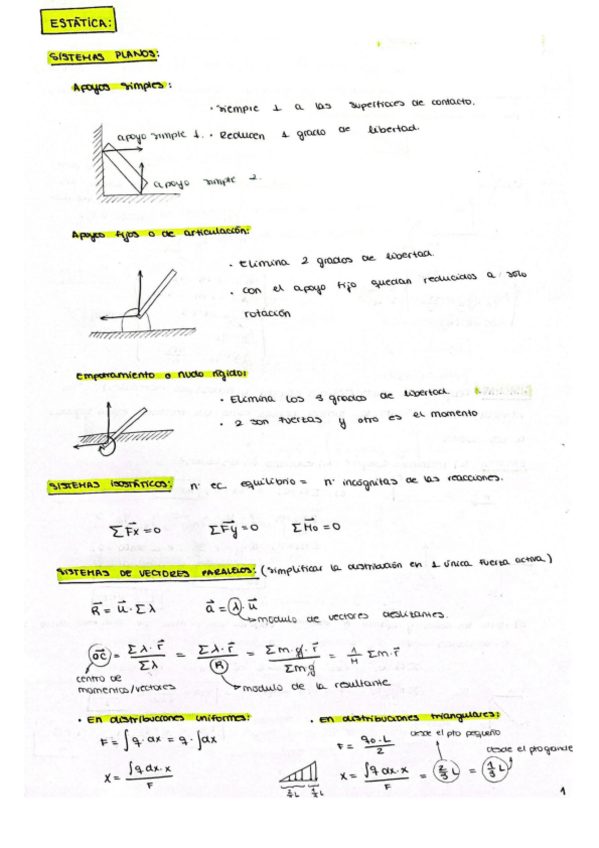 ESTÁTICA:
SISTEMAS PLANOS:
Apoyos simples:
· siempre ⊥ a las superficies de contacto.
apoyo simple 1. · Reducen 1 grado de libertad.
apoyo simple 2.
Apoyos fijos o de articulación:
· Elimina 2 grados de libertad.
· con el apoyo fijo quedan reducidos a solo
rotación
Empotramiento o nudo rígido:
· Elimina los 3 grados de libertad.
· 2 son fuerzas y otro es el momento
SISTEMAS ISOSTÁTICOS: nº ec. equilibrio = nº incógnitas de las reacciones.
ΣF⃗x = 0 ΣF⃗y = 0 ΣM⃗o = 0
SISTEMAS DE VECTORES PARALELOS: (simplificar la distribución en 1 única fuerza activa)
R⃗ = u⃗ · Σλ a⃗ = λ · u⃗
modulo de vectores deslizantes.
OC⃗ = Σλ·r⃗ / Σλ = Σλ·r⃗ / R = Σm·g·r⃗ / Σmg = 1/M Σm·r⃗
centro de
momentos/vectores
modulo de la resultante
· En distribuciones uniformes: · En distribuciones triangulares:
F = ∫q·dx = q·∫dx
F = q₀·L / 2
desde el pto pequeño
desde el pto grande
X = ∫q dx·x / F
X = ∫q dx·x / F = 2/3 L = 1/3 L
1